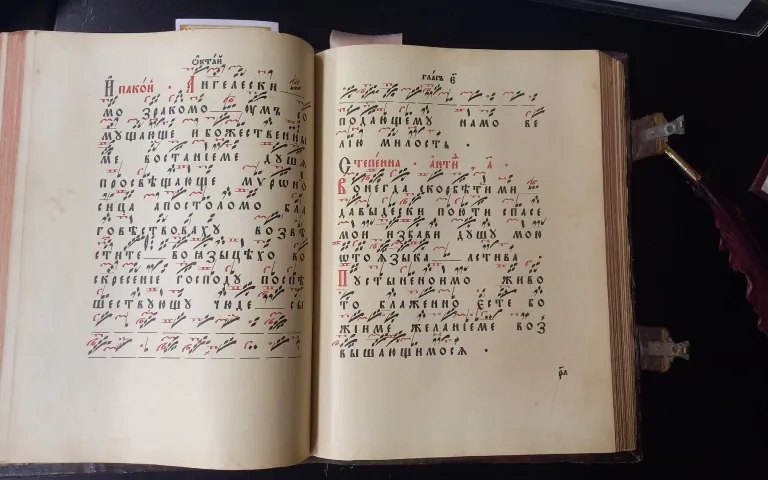 Ѻктаи
Ипакои · Ангелески
мо зракомо умъ со
мущающе и божественны
ме востаниеме душя
просвѣщающе мѵрѡно
сица апостоломо бла
говѣствоваху возвѣ
стите во ꙗзыцѣхо во
скресение господу поспѣ
шествующу тюде сы
гласъ є҃
подающему намо ве
лию милость ·
Степенна · антиⷴ · а҃ ·
Вонегда скорбѣти ми
давыдески пойти спасе
мои избави душу мою
ѿто ꙗзыка лстива ·
Пустынѣноимо живо
то блаженно єсте бо
жиїме желаниеме воз
вышающимося ·